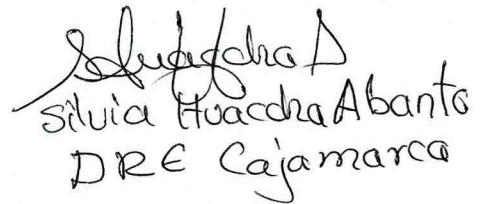 Silvia Huaccha Abanto
DRE Cajamarca